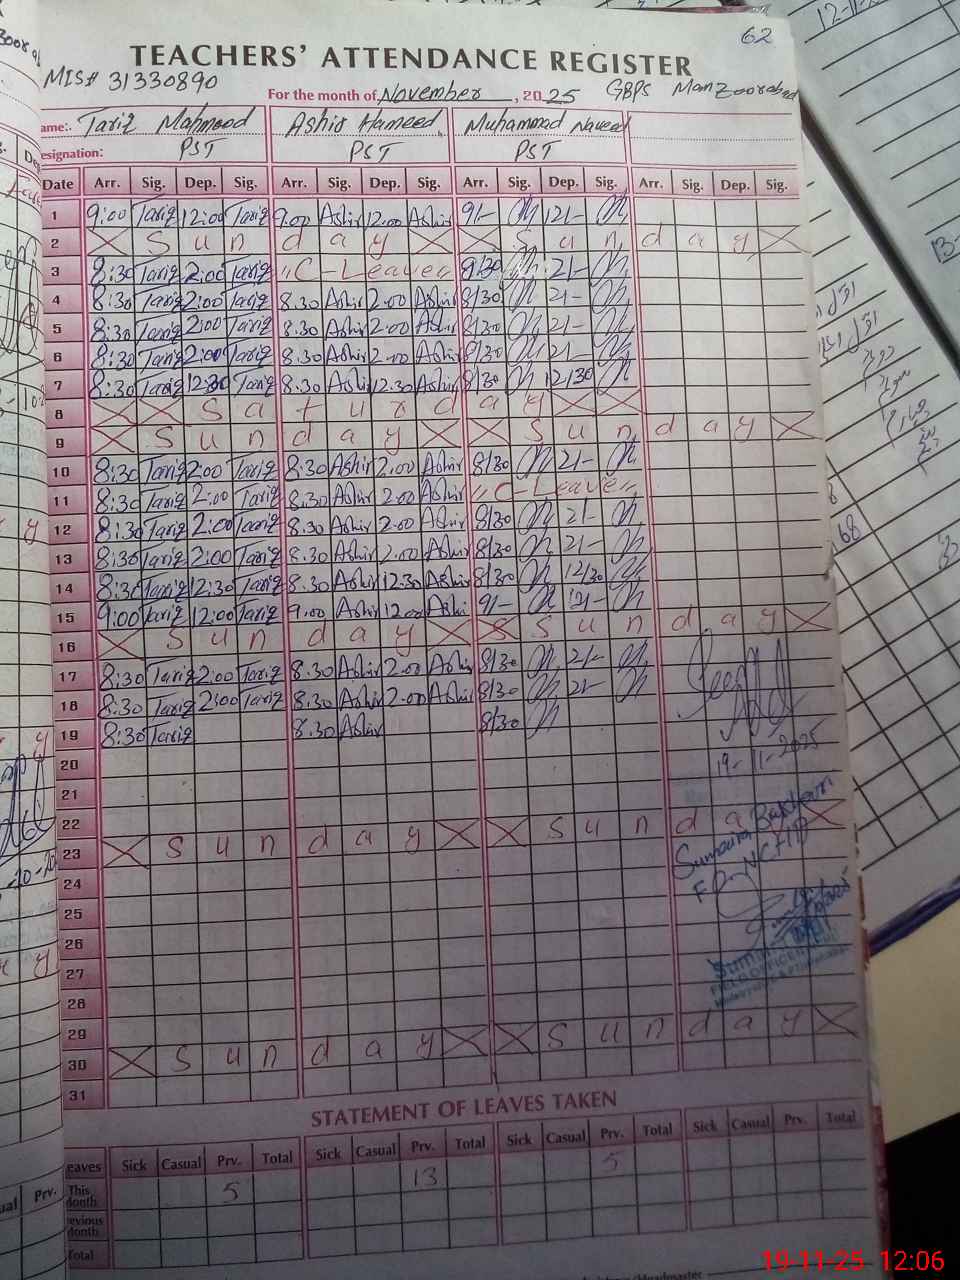 62
TEACHERS' ATTENDANCE REGISTER
MIS# 31330890
For the month of November, 2025 GBPS Manzoorabad
ame:. Tariq Mahmood Ashir Hameed Muhammad Naveed
esignation: PST PST PST
Date Arr. Sig. Dep. Sig. Arr. Sig. Dep. Sig. Arr. Sig. Dep. Sig. Arr. Sig. Dep. Sig.
1 9:00 Tariq 12:00 Tariq 9.00 Ashir 12.00 Ashir 9/- 12/-
2 X S u n d a y X X S u n d a y X
3 8:30 Tariq 2:00 Tariq "C-Leave" 8/30 2/-
4 8:30 Tariq 2:00 Tariq 8.30 Ashir 2.00 Ashir 8/30 2/-
5 8:30 Tariq 2:00 Tariq 8.30 Ashir 2.00 Ashir 8/30 2/-
6 8:30 Tariq 2:00 Tariq 8.30 Ashir 2.00 Ashir 8/30 2/-
7 8:30 Tariq 12:30 Tariq 8.30 Ashir 12.30 Ashir 8/30 12/30
8 X X S a t u r d a y X X
9 X S u n d a y X X S u n d a y X
10 8:30 Tariq 2:00 Tariq 8.30 Ashir 2.00 Ashir 8/30 2/-
11 8:30 Tariq 2:00 Tariq 8.30 Ashir 2.00 Ashir "C-Leave"
12 8:30 Tariq 2:00 Tariq 8.30 Ashir 2.00 Ashir 8/30 2/-
13 8:30 Tariq 2:00 Tariq 8.30 Ashir 2.00 Ashir 8/30 2/-
14 8:30 Tariq 12:30 Tariq 8.30 Ashir 12.30 Ashir 8/30 12/30
15 9:00 Tariq 12:00 Tariq 9.00 Ashir 12.00 Ashir 9/- 12/-
16 X S u n d a y X X S u n d a y X
17 8:30 Tariq 2:00 Tariq 8.30 Ashir 2.00 Ashir 8/30 2/-
18 8:30 Tariq 2:00 Tariq 8.30 Ashir 2.00 Ashir 8/30 2/-
19 8:30 Tariq 8.30 Ashir 8/30
19-11-2025
20
21
22
23 X S u n d a y X X S u n d a X
Sumaira
FO NCHD
24
25
26
27
FIELD OFFICER
28
29
30 X S u n d a y X X S u n d a y X
31
STATEMENT OF LEAVES TAKEN
eaves Sick Casual Prv. Total Sick Casual Prv. Total Sick Casual Prv. Total Sick Casual Prv. Total
This month 5 13 5
evious month
Total
19-11-25 12:06